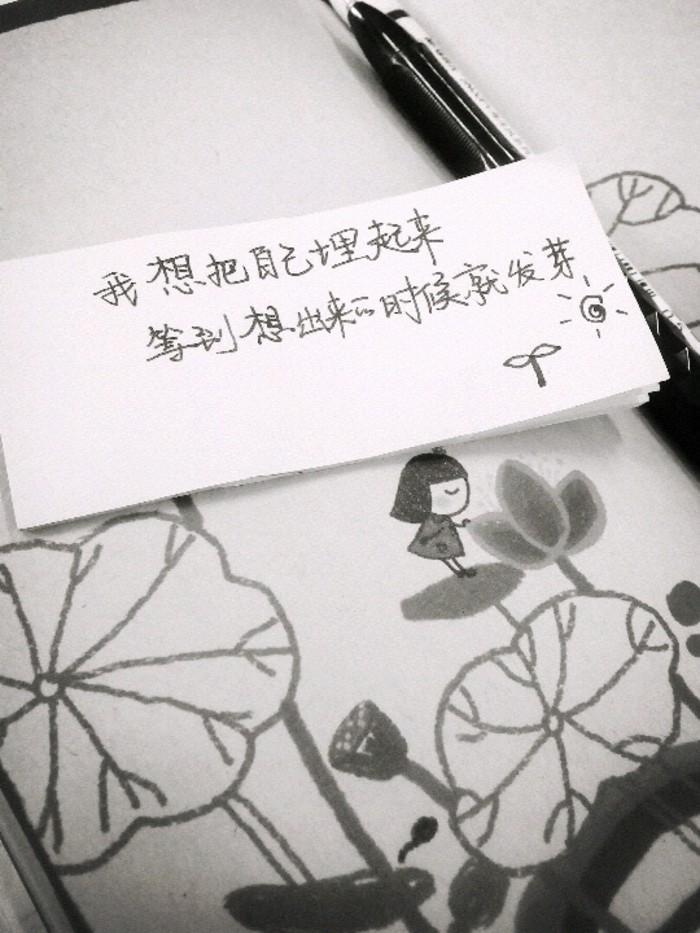 我想把自己埋起来
等到想出来的时候就发芽